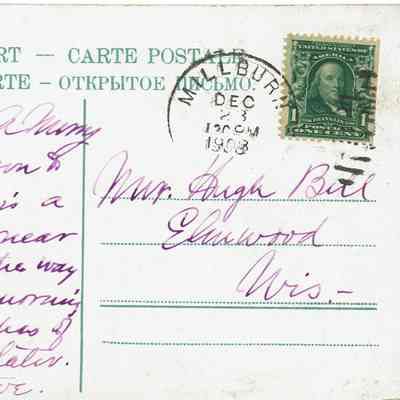 RT — CARTE POSTALE
RTE — ОТКРЫТОЕ ПИСЬМО.
MILLBURN
DEC
23
1908
UNITED STATES OF AMERICA
FRANKLIN
1 POSTAGE 1
ONE CENT
a Merry
is a
near
the way
morning
has of
Mr. Hugh Bell
Elmwood
Wis-